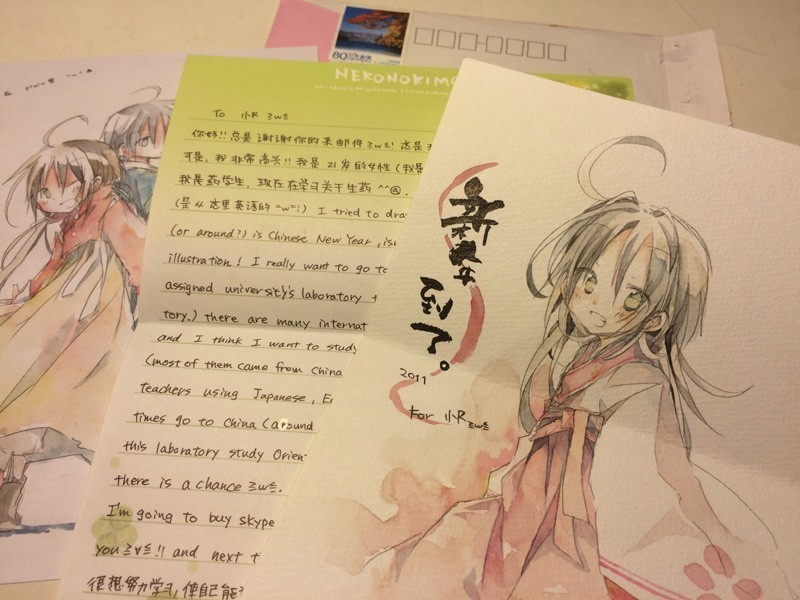 80
NEKONOKIMO
To 小R ≧w≦
你好!!总是谢谢你的来邮件≧w≦!这是
可是,我非常高兴!!我是21岁的女性(我是
我是药学生,现在在学习关于生药^^@.
(是从这里英语的=w=;) I tried to dra
(or around?) is Chinese New Year, is
illustration! I really want to go to
assigned university's laboratory
tory.) there are many internat
and I think I want to study
(most of them came from China
teachers using Japanese, E
times go to China (around
this laboratory study Orien
there is a chance ≧w≦.
I'm going to buy skype
you ≧∀≦!! and next t
很想努力学习,使自己能
新年
到了。
2011
For 小R ≧w≦